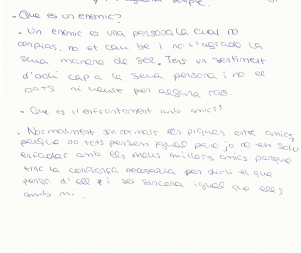 sempre.
- Que es un enemic?
. Un enemic es una persona la cual no
confias, no et cau be i no t'agrada la
seva manera de ser. Tens un sentiment
d'odi cap a la seva persona i no el
pots ni veure per alguna rao
- Que es l'enfrontament amb amics?
. Normalment son normals els piques entre amics,
perque no tots pensem igual pero jo no em solc
enfadar amb els meus millors amics perque
tinc la confiança necessaria per dirli el que
penso d'ell i ser sincera igual que ells
amb mi.